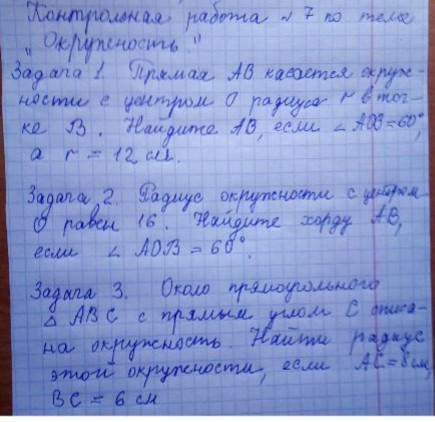 Контрольная работа №7 по теме
"Окружность."
Задача 1. Прямая АВ касается окруж-
ности с центром О радиуса r в точ-
ке В. Найдите АВ, если ∠ АОВ=60°,
а r = 12 см.
Задача 2. Радиус окружности с центром
О равен 16. Найдите хорду АВ,
если ∠ АОВ = 60°.
Задача 3. Около прямоугольного
△ АВС с прямым углом С описа-
на окружность. Найти радиус
этой окружности, если АС=8см,
ВС = 6 см